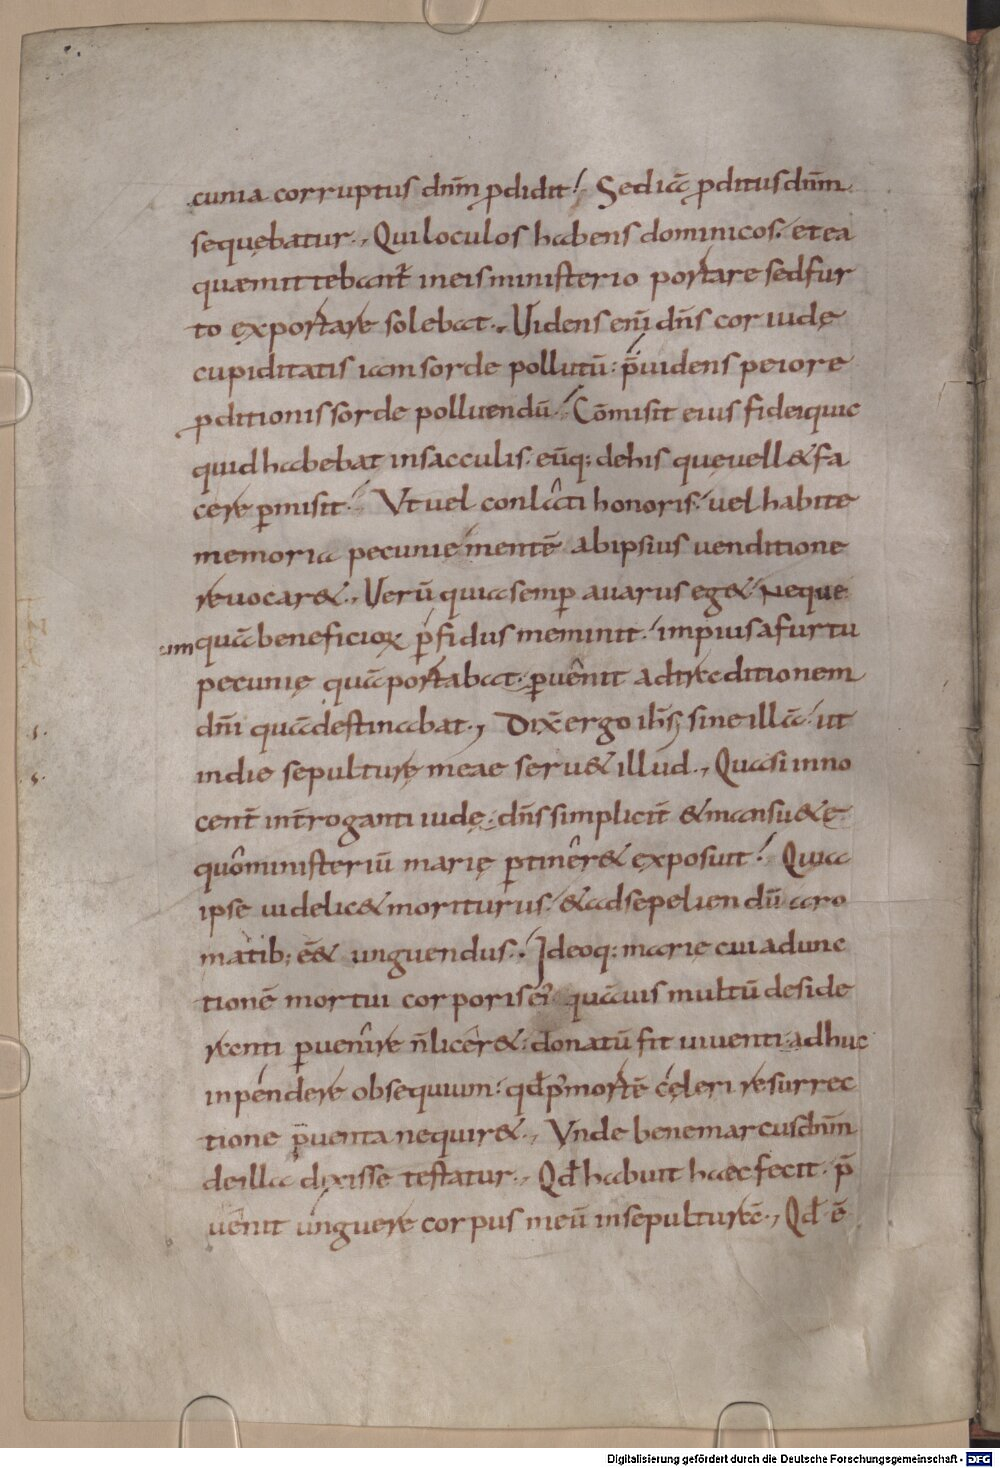 cunia corruptus dnm̄ ꝑdidit! Sed iā ꝑditus dnm̄
sequebatur., Qui loculos habens dominicos. et ea
quæ mittebant̄ in eis ministerio portare sed fur
to exportare solebat., Uidens enī dn̄s cor iudę
cupiditatis iam sorde pollutū. p̄uidens peiore
ꝑditionis sorde polluendū. Cōmisit eius fidei quic
quid habebat in sacculis. eūq; de his quę uell& fa
cere ꝑmisit. Vt uel conlati honoris. uel habite
memoria pecunię mentē ab ipsius uenditione
reuocar&., Uerū quia semꝑ auarus eg& Neque
quā beneficioꝝ ꝑfidus meminit. impius a furtu
im
pecunię quā portabat. ꝑuenit ad traditionem
dn̄i quā destinabat., Dix̄ ergo ih̄s; sine illā ut
in die sepulture meae seru& illud., Quasi inno
cent̄ int̄roganti iudę. dn̄s simplicit̄ & mansu&e
quō ministeriū marię ꝑtiner& exposuit! Quia
ipse uidelic& moriturus. & ad sepeliendū aro
matib; ē& unguendus. Ideoq; marię cui ad unc
tionē mortui corporis eī quāuis multū deside
ranti ꝑuenire n̄ licer&. donatū fit uiuenti adhuc
inpendere obsequium. qd̄ p̄ mortē celeri resurrec
tione p̄uenta nequir&., Vnde bene marcus dnm̄
de illa dixisse testatur., Qd̄ habuit haec fecit. p̄
uenit unguere corpus meū in sepulturā., Qd̄ ē
Digitalisierung gefördert durch die Deutsche Forschungsgemeinschaft - DFG